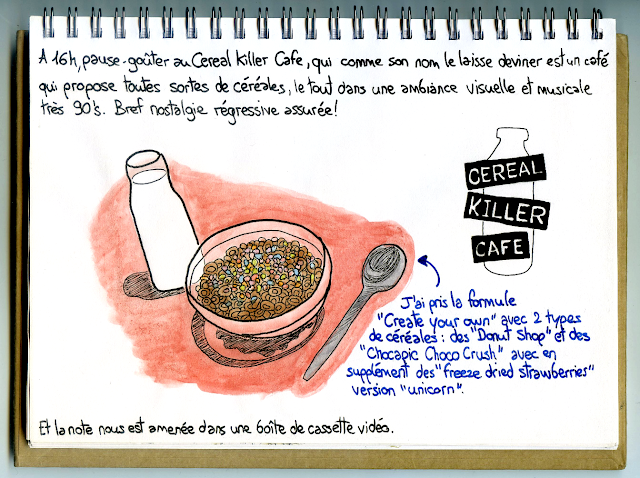 A 16h, pause-goûter au Cereal Killer Cafe, qui comme son nom le laisse deviner est un café
qui propose toutes sortes de céréales, le tout dans une ambiance visuelle et musicale
très 90's. Bref nostalgie régressive assurée!
CEREAL
KILLER
CAFE
J'ai pris la formule
"Create your own" avec 2 types
de céréales : des "Donut Shop" et des
"Chocapic Choco Crush" avec en
supplément des "freeze dried strawberries"
version "unicorn".
Et la note nous est amenée dans une boîte de cassette vidéo.